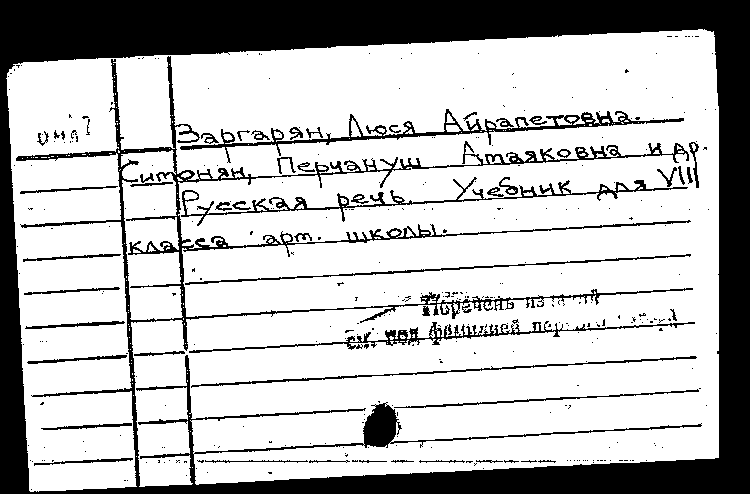 Заргарян, Люся Айрапетовна.
Ситонян, Перчануш Атаяковна и др.
Русская речь. Учебник для VIII
класса арм. школы.
Перечень изданий
см. под фамилией первого